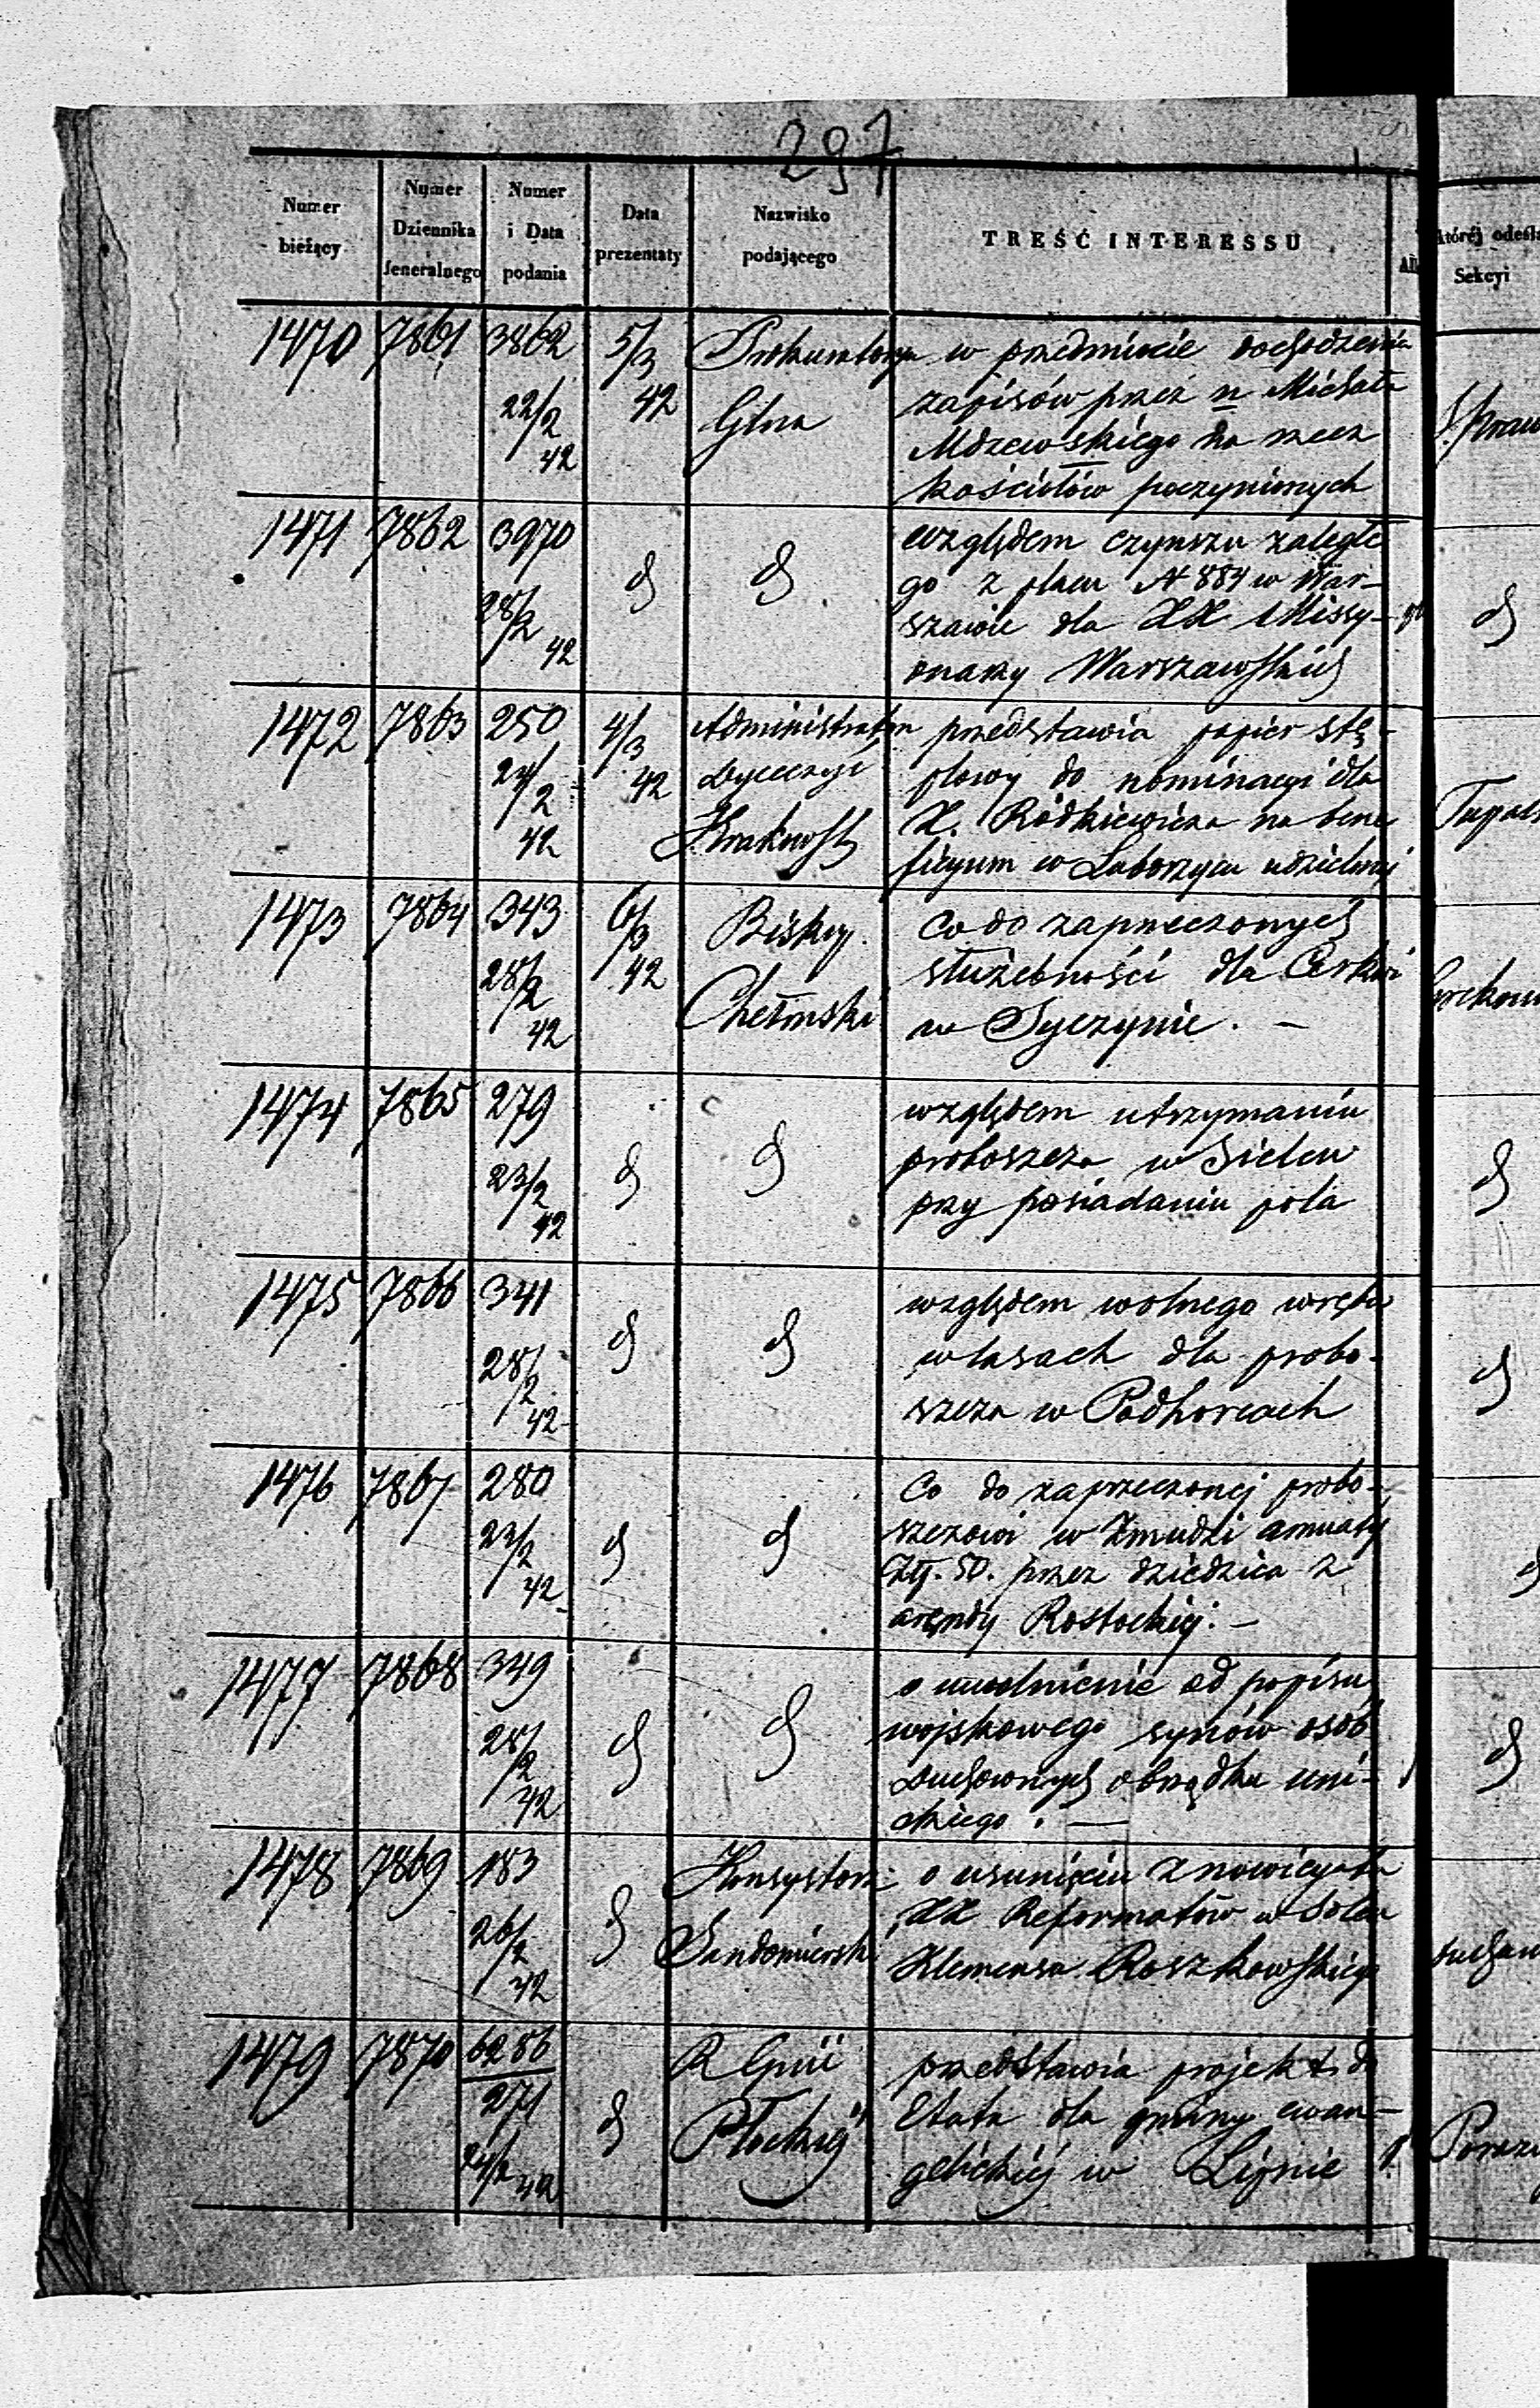 297
Numer bieżący
Numer Dziennika Jeneralnego
Numer i Data podania
Data prezentaty
Nazwisko podającego
TREŚĆ INTERESSU
której odesł
Sekcyi
1470 7861 3862 5/3 Prokuratorya w przedmiocie dochodzenia
22/2 42 Glna zapisów przez n Michała
42 Mdzewskiego na rzecz
kościołów poczynionych
1471 7862 3970 względem czynszu zaległe
d d go z placu N 884 w War-
28/2 szawie dla XX Missy- d
42 onarzy Warszawskich
1472 7863 250 4/3 Administrator przedstawia papier stę-
24/2 42 Dyecezyi plowy do nominacyi dla
42 Krakowsk X. Ródkiewicza na bene
ficyum w Luborzycu udzielonej
1473 7864 343 6/3 Biskup co do zaprzeczonych
28/2 42 służebności dla Cerkwi
42 Chełmski w Syczynie. —
1474 7865 279 względem utrzymania
23/2 d d proboszcza w Sielcu d
42 przy posiadaniu pola
1475 7866 341 względem wolnego wrębu
28/2 d d w lasach dla probo- d
42 szcza w Podhorcach
1476 7867 280 Co do zaprzeczonej probo-
23/2 d d szczowi w Żmudzi annuaty
42 Złp. 50. przez dziedzica z d
arendy Rostockiej. —
1477 7868 349 o uwolnienie od popisu
28/2 d d wojskowego synów osób d
42 Duchownych obrządku uni-
ckiego. —
1478 7869 183 Konsystorz o usunięciu z nowicyatu
26/2 d XX Reformatów w Solcu
42 Sandomiersk Klemensa Roszkowskiego
1479 7870 6286 R Gnii przedstawia projekt do
271 d Płockiej Etatu dla gminy ewan-
24/2 42 gelickiej w Lipnie